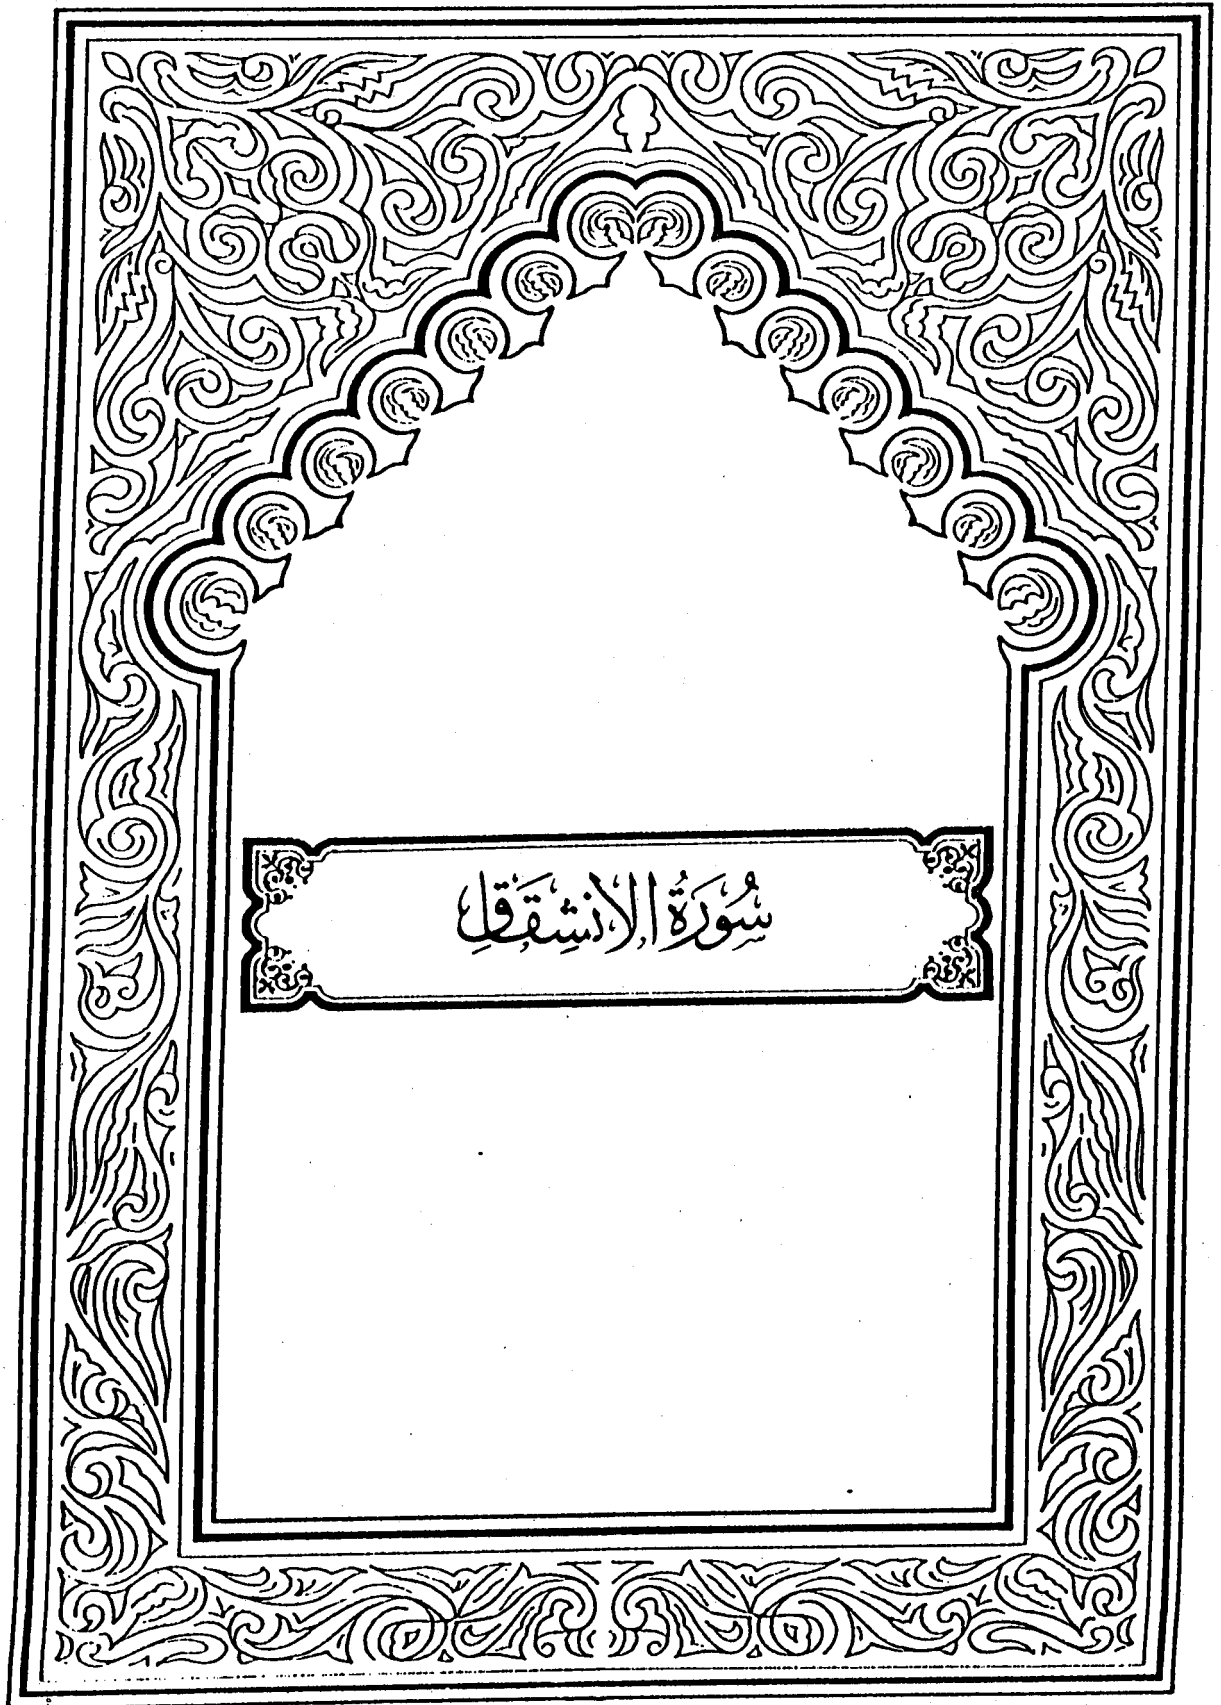 سُورَةُ الانشِقَاقِ